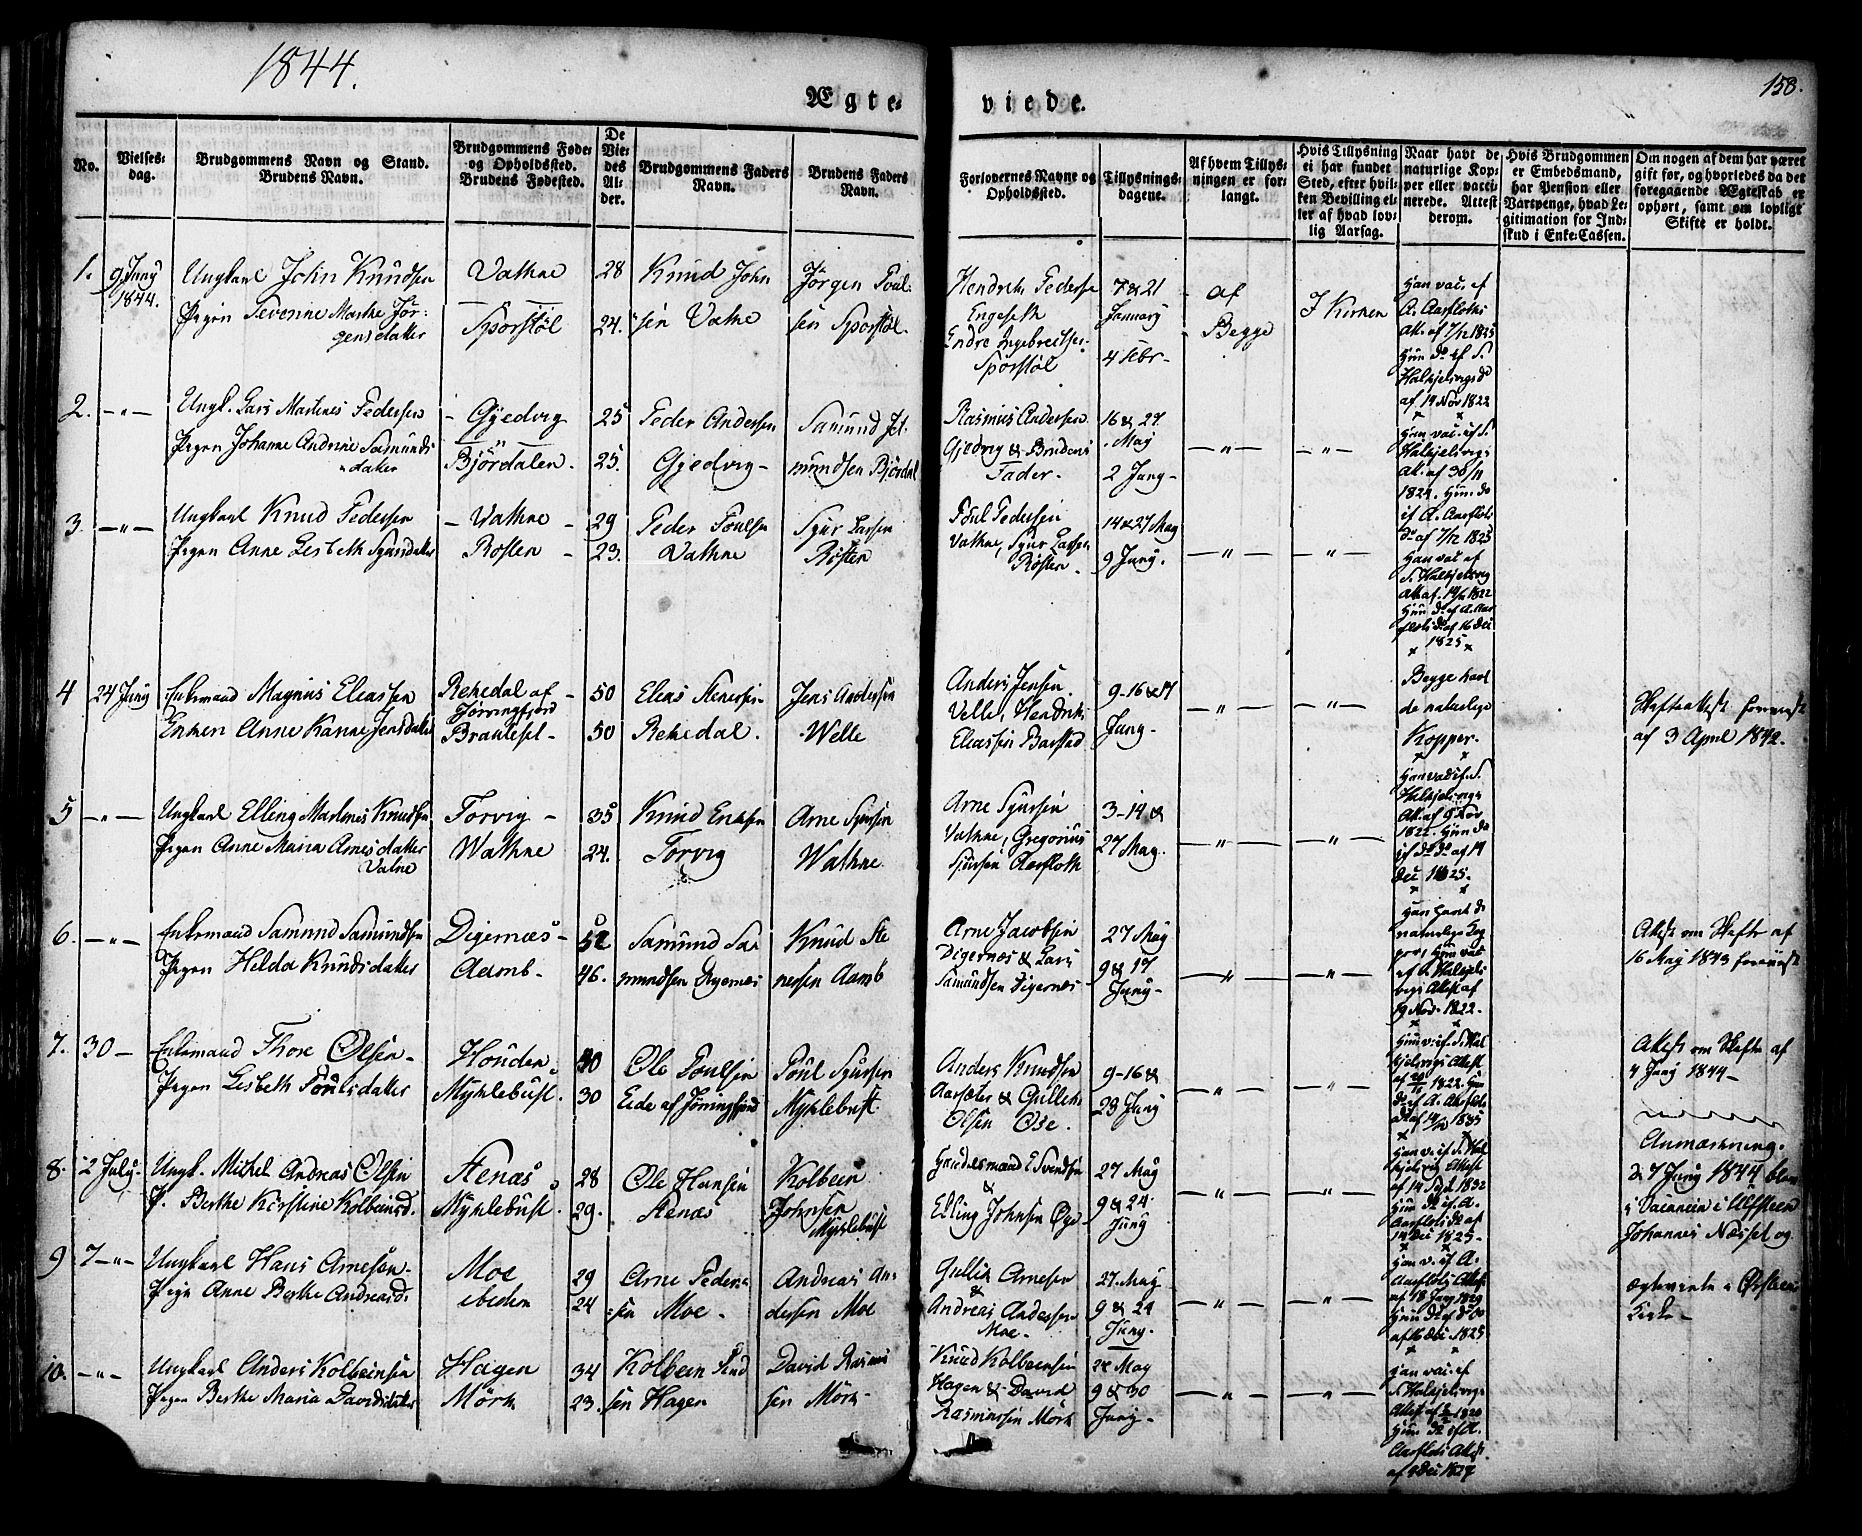 1844.
158.
Ægte-
viede.
No.
Vielses-
dag.
Brudgommens Navn og Stand.
Brudens Navn.
Brudgommens Føde-
og Opholdssted.
Brudens Fødested.
De
Vie-
des
Al-
der.
Brudgommens Faders
Navn.
Brudens Faders
Navn.
Forlovernes Navne og
Opholdssted.
Tillysnings-
dagene.
Af hvem Tillys-
ningen er for-
langt.
Hvis Tillysning
ei har fundet
Sted, efter hvil-
ken Bevilling el-
ler af hvad lov-
lig Aarsag.
Naar havt de
naturlige Kop-
per eller vacci-
nerede. Attest
derom.
Hvis Brudgommen
er Embedsmand,
har Pension eller
Vartpenge, hvad Le-
gitimation for Ind-
skud i Enke-Cassen.
Om nogen af dem har været
gift før, og hvorledes da det
foregaaende Ægteskab er
ophørt, samt om lovligt
Skifte er holdt.
1.
9 Juny
1844.
Ungkarl John Knudsen
Pigen Severine Marthe Jør-
gensdatter
Vathne
Sporstøl
28
24.
Knud John
sen Vatne
Jørgen Poul-
sen Sporstøl.
Hendrik Pedersen
Engeseth
Endre Ingebretsen
Sporstøl
7 & 21
January
4 Febr-
af
Begge
I Kirken
Han vac. af
A. Aarfloths
Att. af 7/12 1825
Hun do af S.
Halkjelsvigs do
af 19 Nov 1822
2.
-"-
Ungk. Lars Martinus Pedersen
Pigen Johanne Andrine Samunds
datter
Gjedvig
Bjørdalen.
25
25.
Peder Andersen
Gjedvig-
Samund Jet-
mundsen Bjørdal
Rasmus Andersen
Gjedvig & Brudens
Fader.
16 & 27
May
2 Juny-
-"-
-"-
Han vac. af S.
Halkjelsvigs
Att. af 30/11
1824. Hun do
af A. Aarfloths
do af 7/12 1825
3.
-"-
Ungkarl Knud Pedersen
Pigen Anne Lisbeth Sjursdatter
Vathne
Røsten
29
23.
Peder Poulsen
Vathne
Sjur Larsen
Røsten
Poul Pedersen
Vathne, Sjur Larsen
Røsten.
14 & 27 May
9 Juny.
-"-
-"-
Han vac af
S. Halkjelsvig
Att. af 19/11 1822
Hun do af A. Aar
floths do af 16 Dec
1825
4
24 Juny
Enkemand Magnus Eleassen
Enken Anne Karine Jensdatter
Rekedal af
Jørringfjord
Brautesel-
50
50
Eleas Stenersen-
Rekedal.
Jens Andersen
Welle
Anders Jensen
Velle, Hendrik
Eleassen Barstad
9-16 & 17
Juny-
-"-
-"-
Begge havt
de naturlige
Kopper.
Skifteattest forevist
af 3 April 1842.
5
-"-
Ungkarl Elling Martinus Knudsen
Pigen Anne Maria Arnesdatter
Vatne
Torvig
Wathne
35
24.
Knud Ericksen
Torvig
Arne Sjursen
Wathne
Arne Sjursen
Vathne, Gregorius
Sjursen Aarfloth
3-14 &
27 May.
-"-
-"-
Han vac af S.
Halkjelsvigs
Att. af 9 Nov
1822. Hun do
af do do af 19
Dec 1825.
6.
-"-
Enkemand Samund Samundsen
Pigen Helda Knudsdatter
Digernæs
Aamb-
52
46.
Samund Sa
mundsen Digernæs
Knud Ste
nersen Aamb
Arne Jacobsen
Digernæs & Lars
Samundsen Digernæs
27 May
9 & 17
Juny-
-"-
-"-
Han havt de
naturlige Kop
per, Hun vac
af S. Halkjels
vigs Attest af
19 Nov. 1822.
Attest om Skifte af
16 May 1843 forevist
7.
30 -
Enkemand Thore Olsen-
Pigen Lisbeth Poulsdatter
Houden
Myklebust.
40
30
Ole Poulsen
Eide af Jørringfjord
Poul Sjursen
Myklebust
Anders Knudsen
Aarsæter & Gullik
Olsen Ose.
9-16 &
23 Juny
-"-
-"-
Attest om Skifte af
4 Juny 1844-
8.
2 July-
Ungk. Mikkel Andreas Olsen
P. Berthe Kirstine Kolbeinsd.
Stenæs
Myklebust.
28
29.
Ole Hansen
Stenæs
Kolbein
Johnsen
Myklebust
E Svendsen
&
Elling Johnsen Øye
27 May
9 & 24
Juny
-"-
-"-
Anmærkning.
D. 7 Juny 1844 blev
Johannes Næsset og
ægteviede i Ørsteens
Kirke-
9
7-"-
Ungkarl Hans Arnesen-
Pign Anne Berthe Andreasd.
Moe
ibidem
29
24
Arne Peder-
sen Moe-
Andreas An-
dersen Moe
Gullik Arnesen
&
Andreas Andersen
Moe-
27. May
9 & 24
Juny.
-"-
-"-
10.
-"-
Ungkarl Anders Kolbeinsen
Pigen Berthe Maria Davidsdatter
Hagen
Mørk
34
23.
Kolbein Knud
sen Hagen
David Rasmus
sen Mørk-
Knud Kolbeinsen
Hagen & David
Rasmussen Mørk
28 May
9 & 30
Juny-
-"-
-"-
Han vac. af
S. Halkjelsvigs
Hun do af A.
Aarfloths Attest
af 9 Dec 1827